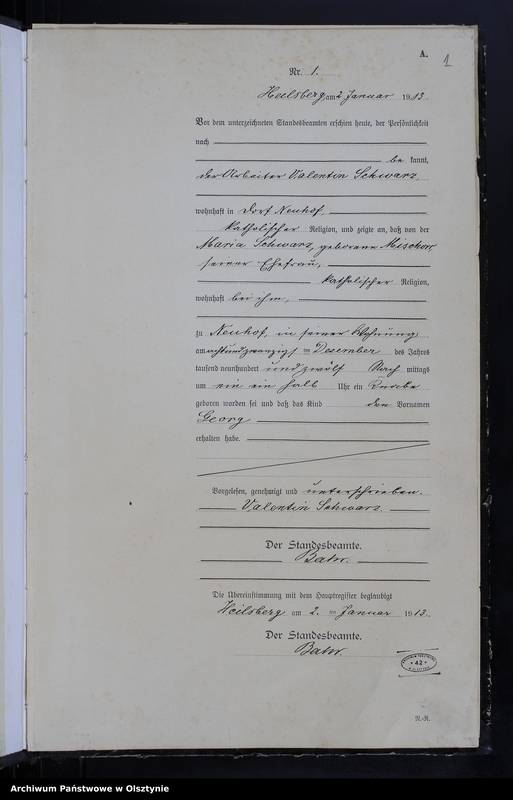 A.
1
Nr. 1.
Heilsberg, am 2 Januar 1913.
Vor dem unterzeichneten Standesbeamten erschien heute, der Persönlichkeit
nach
be kannt,
der Arbeiter Valentin Schwarz
wohnhaft in Dorf Neuhof,
katholischer Religion, und zeigte an, daß von der
Maria Schwarz, geborenen
seiner Ehefrau,
katholischer Religion,
wohnhaft bei ihm,
zu Neuhof, in seiner Wohnung
am achtundzwanzigsten Dezember des Jahres
tausend neunhundert und zwölf Nach mittags
um ein ein halb Uhr ein Knabe
geboren worden sei und daß das Kind den Vornamen
Georg
erhalten habe.
Vorgelesen, genehmigt und unterschrieben.
Valentin Schwarz.
Der Standesbeamte.
Die Übereinstimmung mit dem Hauptregister beglaubigt
Heilsberg am 2. ten Januar 1913.
Der Standesbeamte.
42
N.-R.
Archiwum Państwowe w Olsztynie